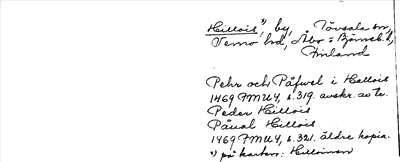 Hillois*), by, Tövsala sn,
Vemo hd, Åbo o Björneb. l,
Finland
Pehr och Påfwel i Hallois
1469 FMU 4, s. 319. avskr. av tr.
Peder Hillois
Påual Hillois
1469 FMU 4, s. 321. äldre kopia.
*) på kartan: Hilloinen